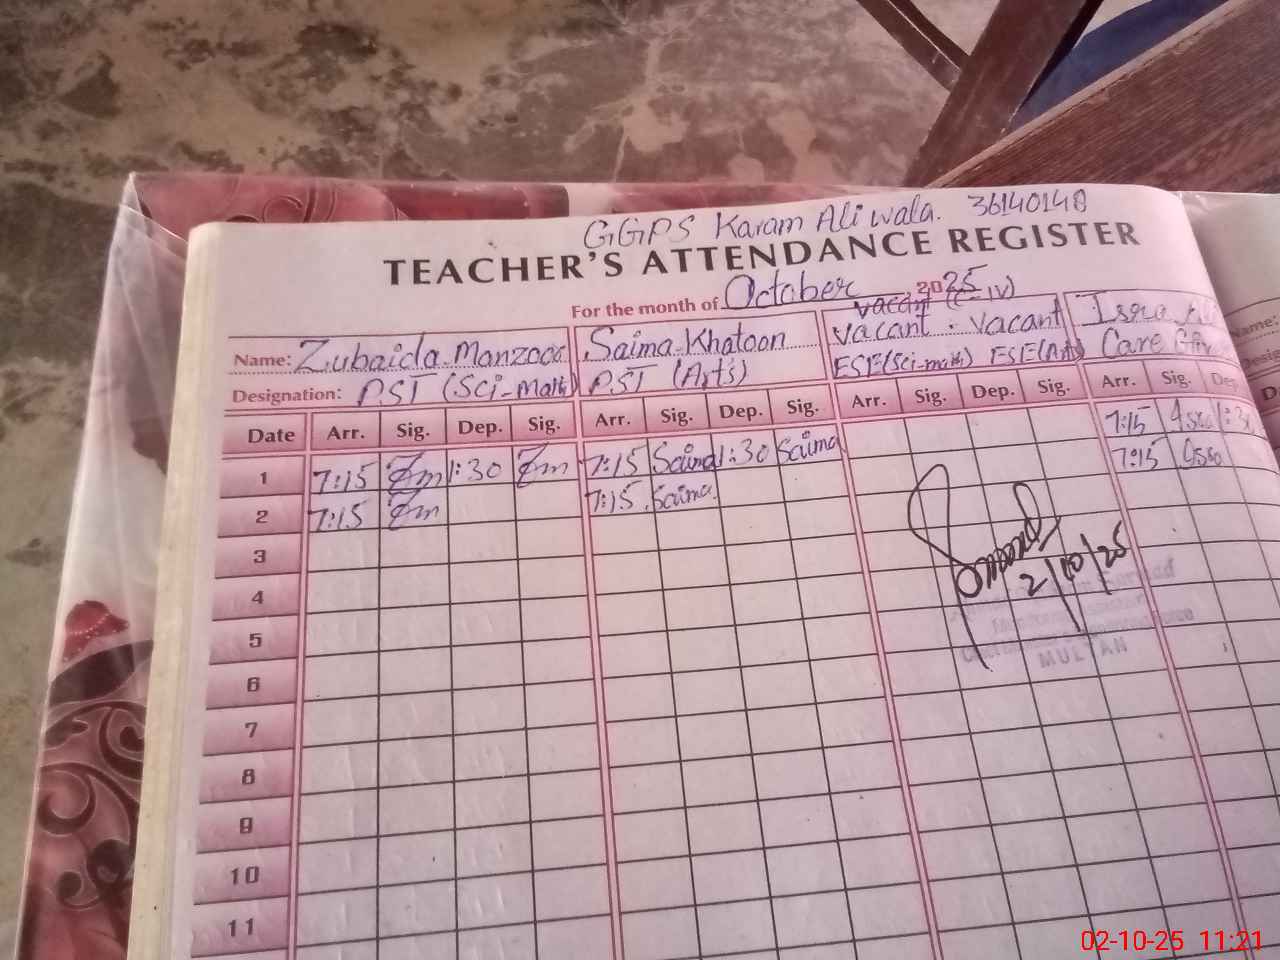 GGPS Karam Ali wala. 36140148
TEACHER'S ATTENDANCE REGISTER
For the month of October 2025
Name: Zubaida Manzoor Saima Khatoon vacant (C-IV) vacant . vacant Isra
Designation: PST (Sci-math) PST (Arts) ESE(Sci-math) ESE(Arts) Care
Date Arr. Sig. Dep. Sig. Arr. Sig. Dep. Sig. Arr. Sig. Dep. Sig. Arr. Sig. Dep
1 7:15 Zm 1:30 Zm 7:15 Saima 1:30 Saima 7:15 Isra 1:30
2 7:15 Zm 7:15 Saima 7:15 Isra
3
4
5
6
7
8
9
10
11
2/10/25
MULTAN
Name:
02-10-25 11:21